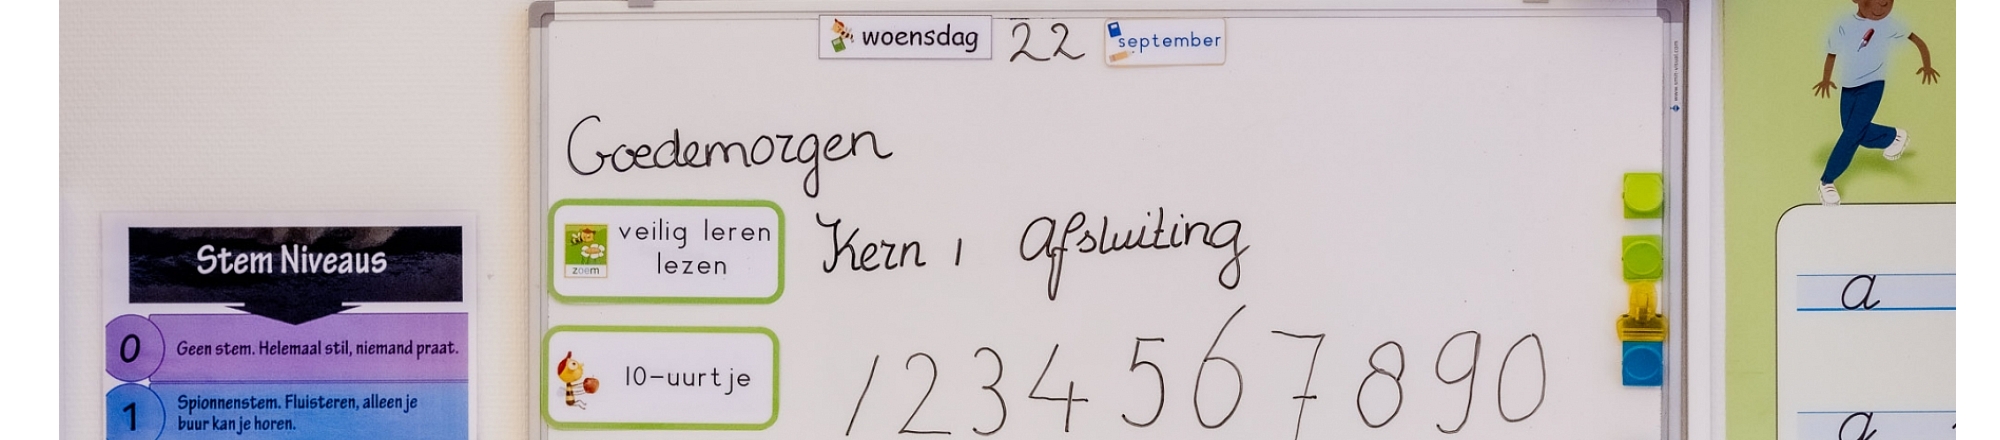 woensdag 22 september
Goedemorgen
zoem
veilig leren
lezen
Kern 1 Afsluiting
10-uurtje
1 2 3 4 5 6 7 8 9 0
Stem Niveaus
0 Geen stem. Helemaal stil, niemand praat.
1 Spionnenstem. Fluisteren, alleen je
buur kan je horen.
a
a